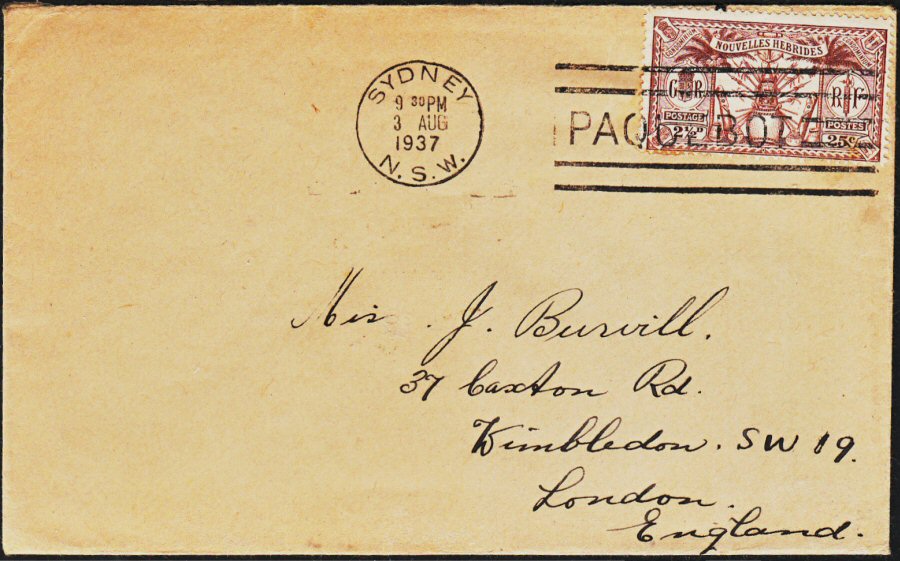 NOUVELLES HEBRIDES
G R
R F
POSTAGE
POSTES
2½D
25c
SYDNEY
9 30 PM
3 AUG
1937
N.S.W.
PAQUEBOT
J. Burvill.
37 Caxton Rd.
Wimbledon. SW 19.
London.
England.